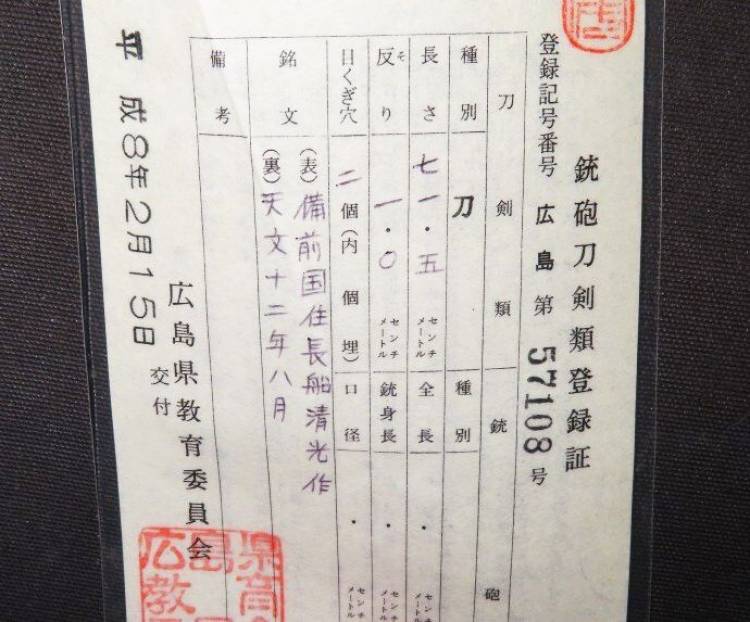 銃砲刀剣類登録証
登録記号番号 広島 第 57108 号
刀剣類 銃砲
種別 刀 種別
長さ 七一・五 センチメートル 全長 ・ センチメートル
反り そり 一・〇 センチメートル 銃身長 ・ センチメートル
目くぎ穴 二個(内 個埋) 口径 ・ センチメートル
銘文 (表)備前国住長船清光作
(裏)天文十二年八月
備考
平成8年2月15日 交付
広島県教育委員会
広島県教育